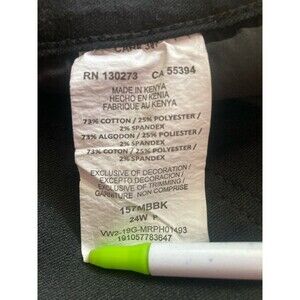 RN 130273 CA 55394
MADE IN KENYA
HECHO EN KENIA
FABRIQUE AU KENYA
73% COTTON / 25% POLYESTER /
2% SPANDEX
73% ALGODON / 25% POLIESTER /
2% SPANDEX
73% COTON / 25% POLYESTER /
2% SPANDEX
EXCLUSIVE OF DECORATION /
EXCEPTO DECORACION /
EXCLUSIVE OF TRIMMING /
GARNITURE NON COMPRISE
157MBBK
24W P
VW2-19G-MRPH01493
191057783647